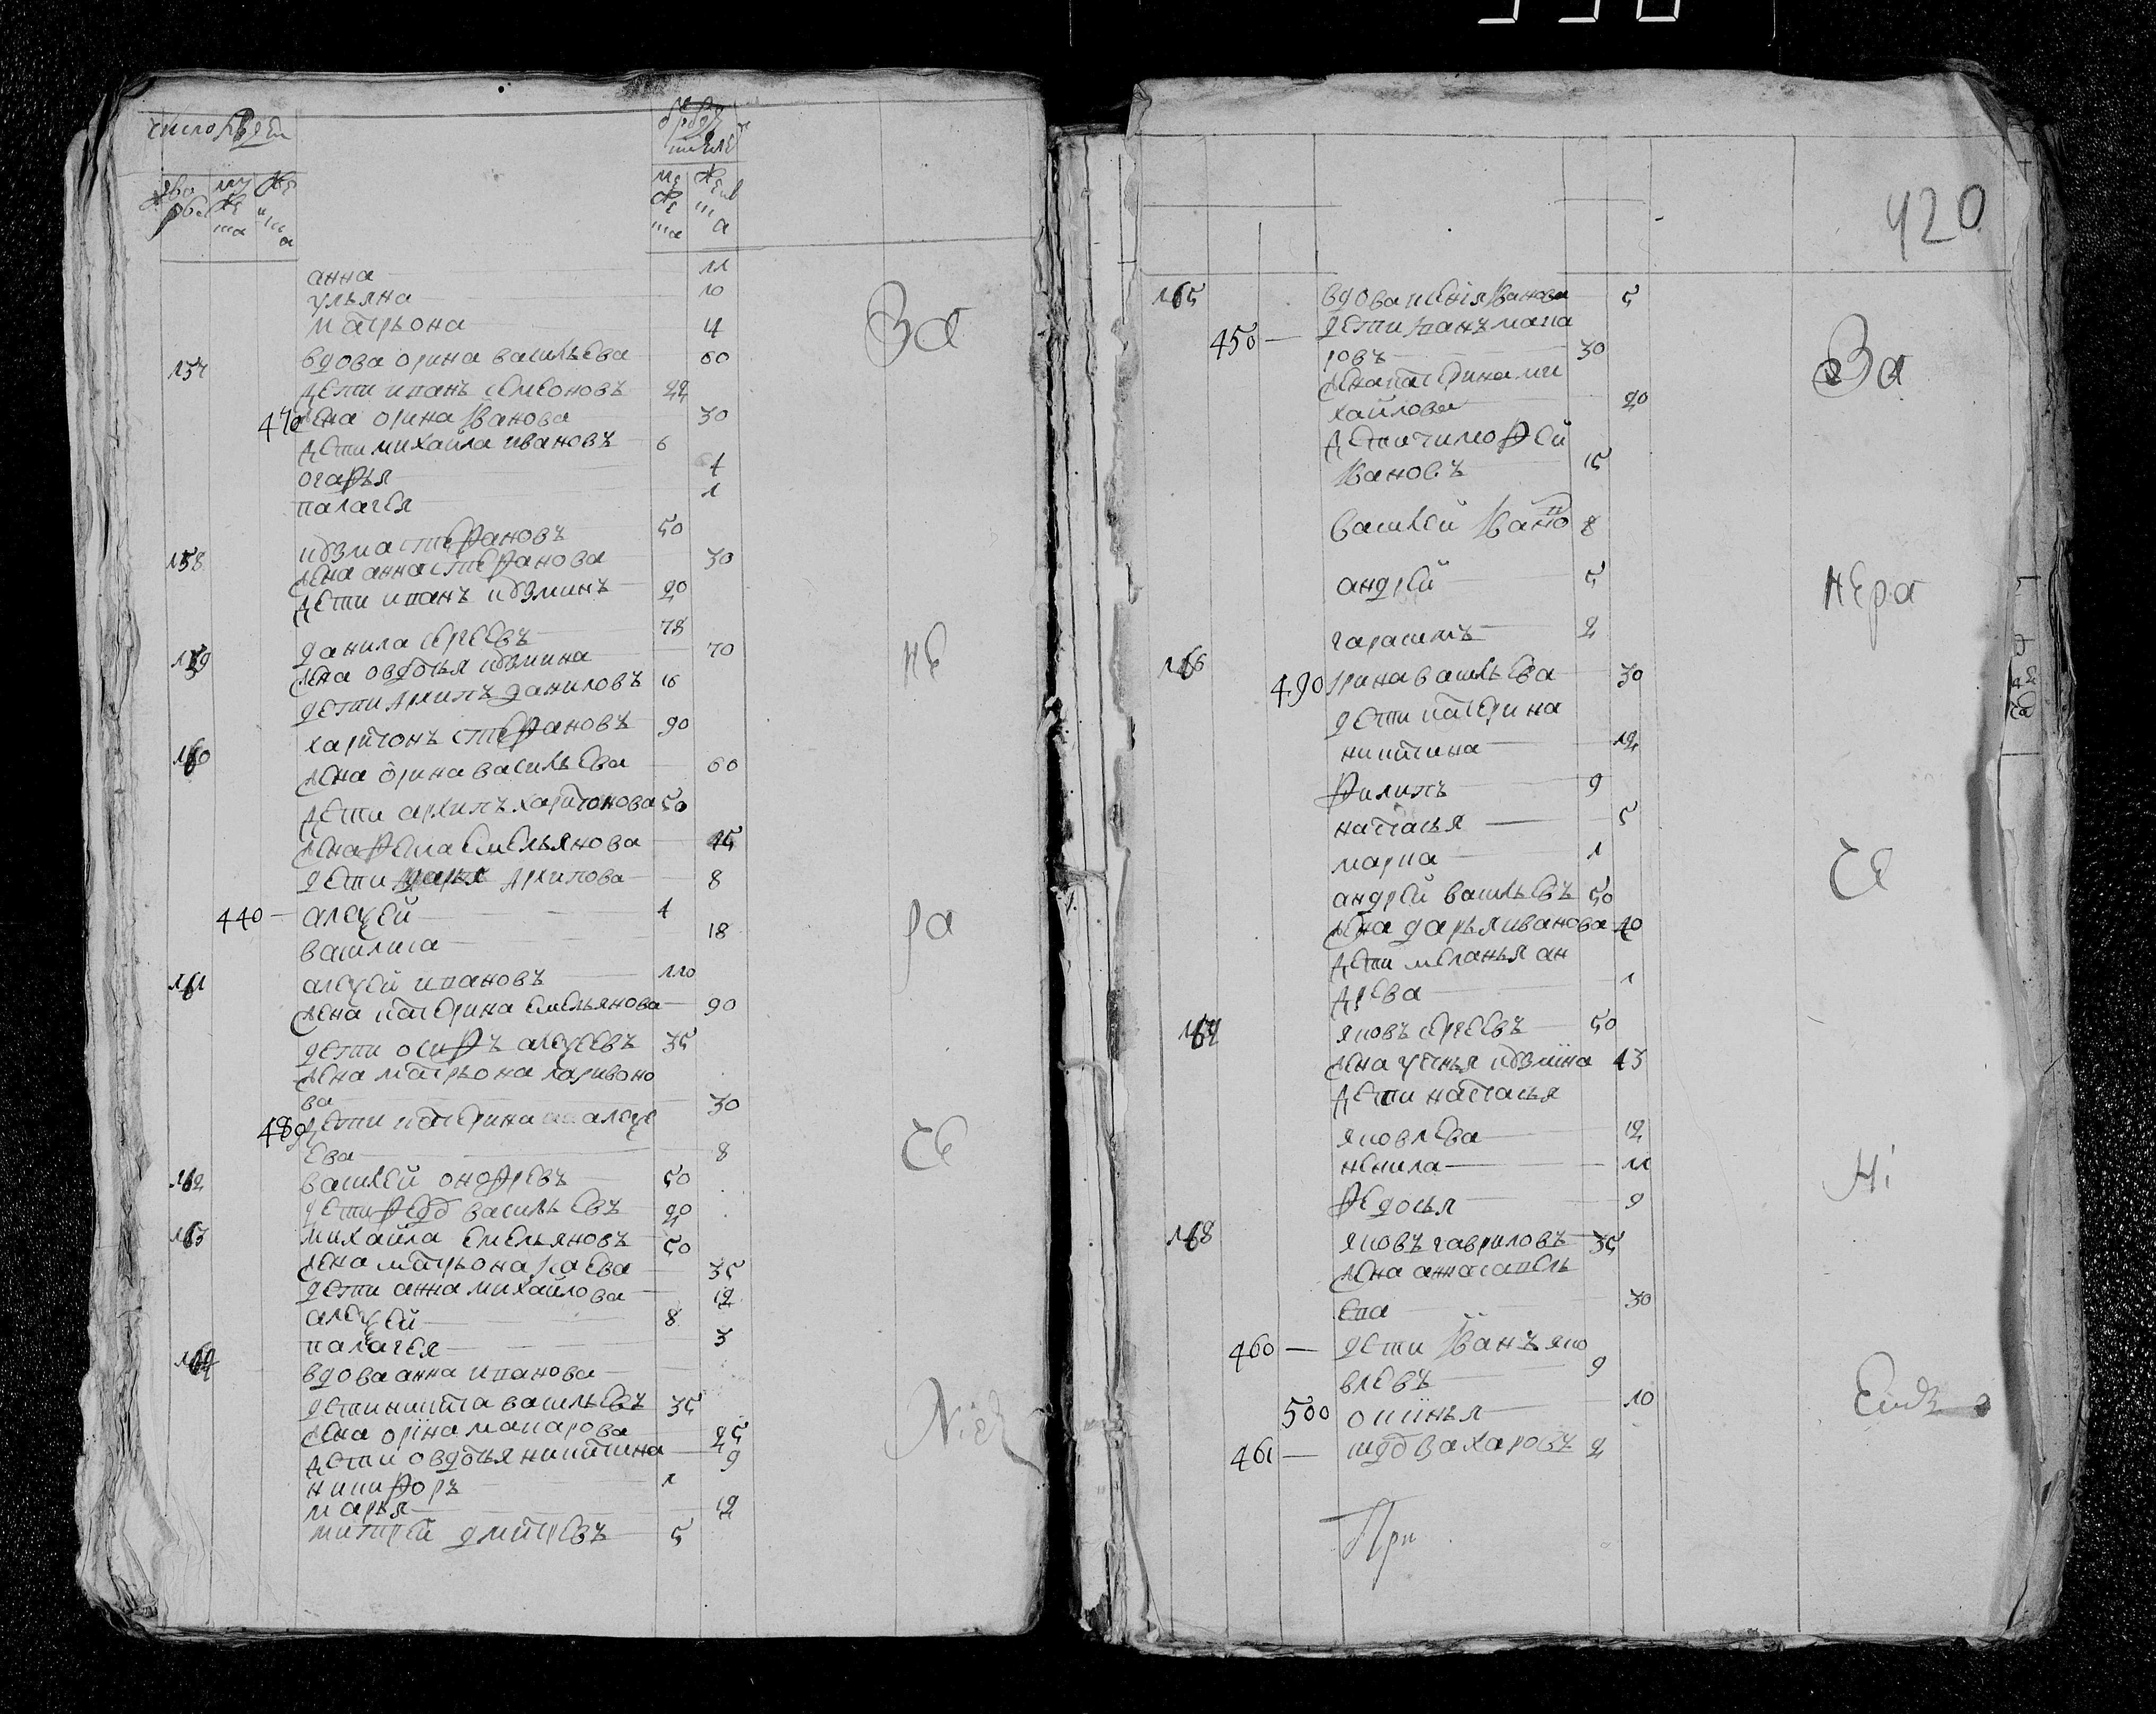 число людей
дворовъ
мужеска
женска
от роду имъ летъ
мужеска
женска
анна 11
ульяна 10
матрьона 4
157 вдова орина васильева 60
дети иванъ семеоновъ 22
470 жена орина Иванова 30
дети михайла ивановъ 6
огафья 4
палагея 1
158 козма стефановъ 50
жена анна стефанова 30
дети иванъ козминъ 20
159 данила сергеевъ 78
жена овдотья козмина 70
дети архипъ даниловъ 16
160 харитонъ стефановъ 90
жена орина васильева 60
дети архипъ харитонова 50
жена фекла емельянова 45
дети дарья архипова 8
440 — алексей 1
василиса 18
161 алексей ивановъ 110
жена катерина емельянова 90
дети осифъ алексеевъ 35
жена матрьона ларивоно
ва 30
480 дети катерина алексе
ева 8
162 василей онофревъ 50
дети федор васильевъ 20
163 михайла емельяновъ 50
жена матрьона исаева 35
дети анна михайлова 12
алексей 8
палагея 3
164 вдова анна иванова
дети никита васильевъ 35
жена орина макарова 25
дети овдотья никитина 9
никифоръ 1
марья 12
митрей дмитревъ 5
За
не
ра
че
420
165 вдова ксения Иванова 5
450 — дети иванъ мака
ровъ 30
жена катерина ми
хайлова 20
дети тимофей
Ивановъ 15
василей Ивано 8
андрей 5
гарасимъ 2
166 490 Ирина васильева 30
дети катерина
никитина 12
филипъ 9
наталья 5
марка 1
андрей васильевъ 50
жена дарья иванова 40
дети меланья ан
древа 1
167 яковъ сергеевъ 50
жена устинья козмина 43
дети наталья
яковлева 12
ненила 11
федосья 9
168 яковъ гавриловъ 35
жена анна савель
ева 30
460 — дети Иванъ яко
влевъ 9
500 оксинья 10
461 — федор захаровъ 2
При
За
нера
че
ні